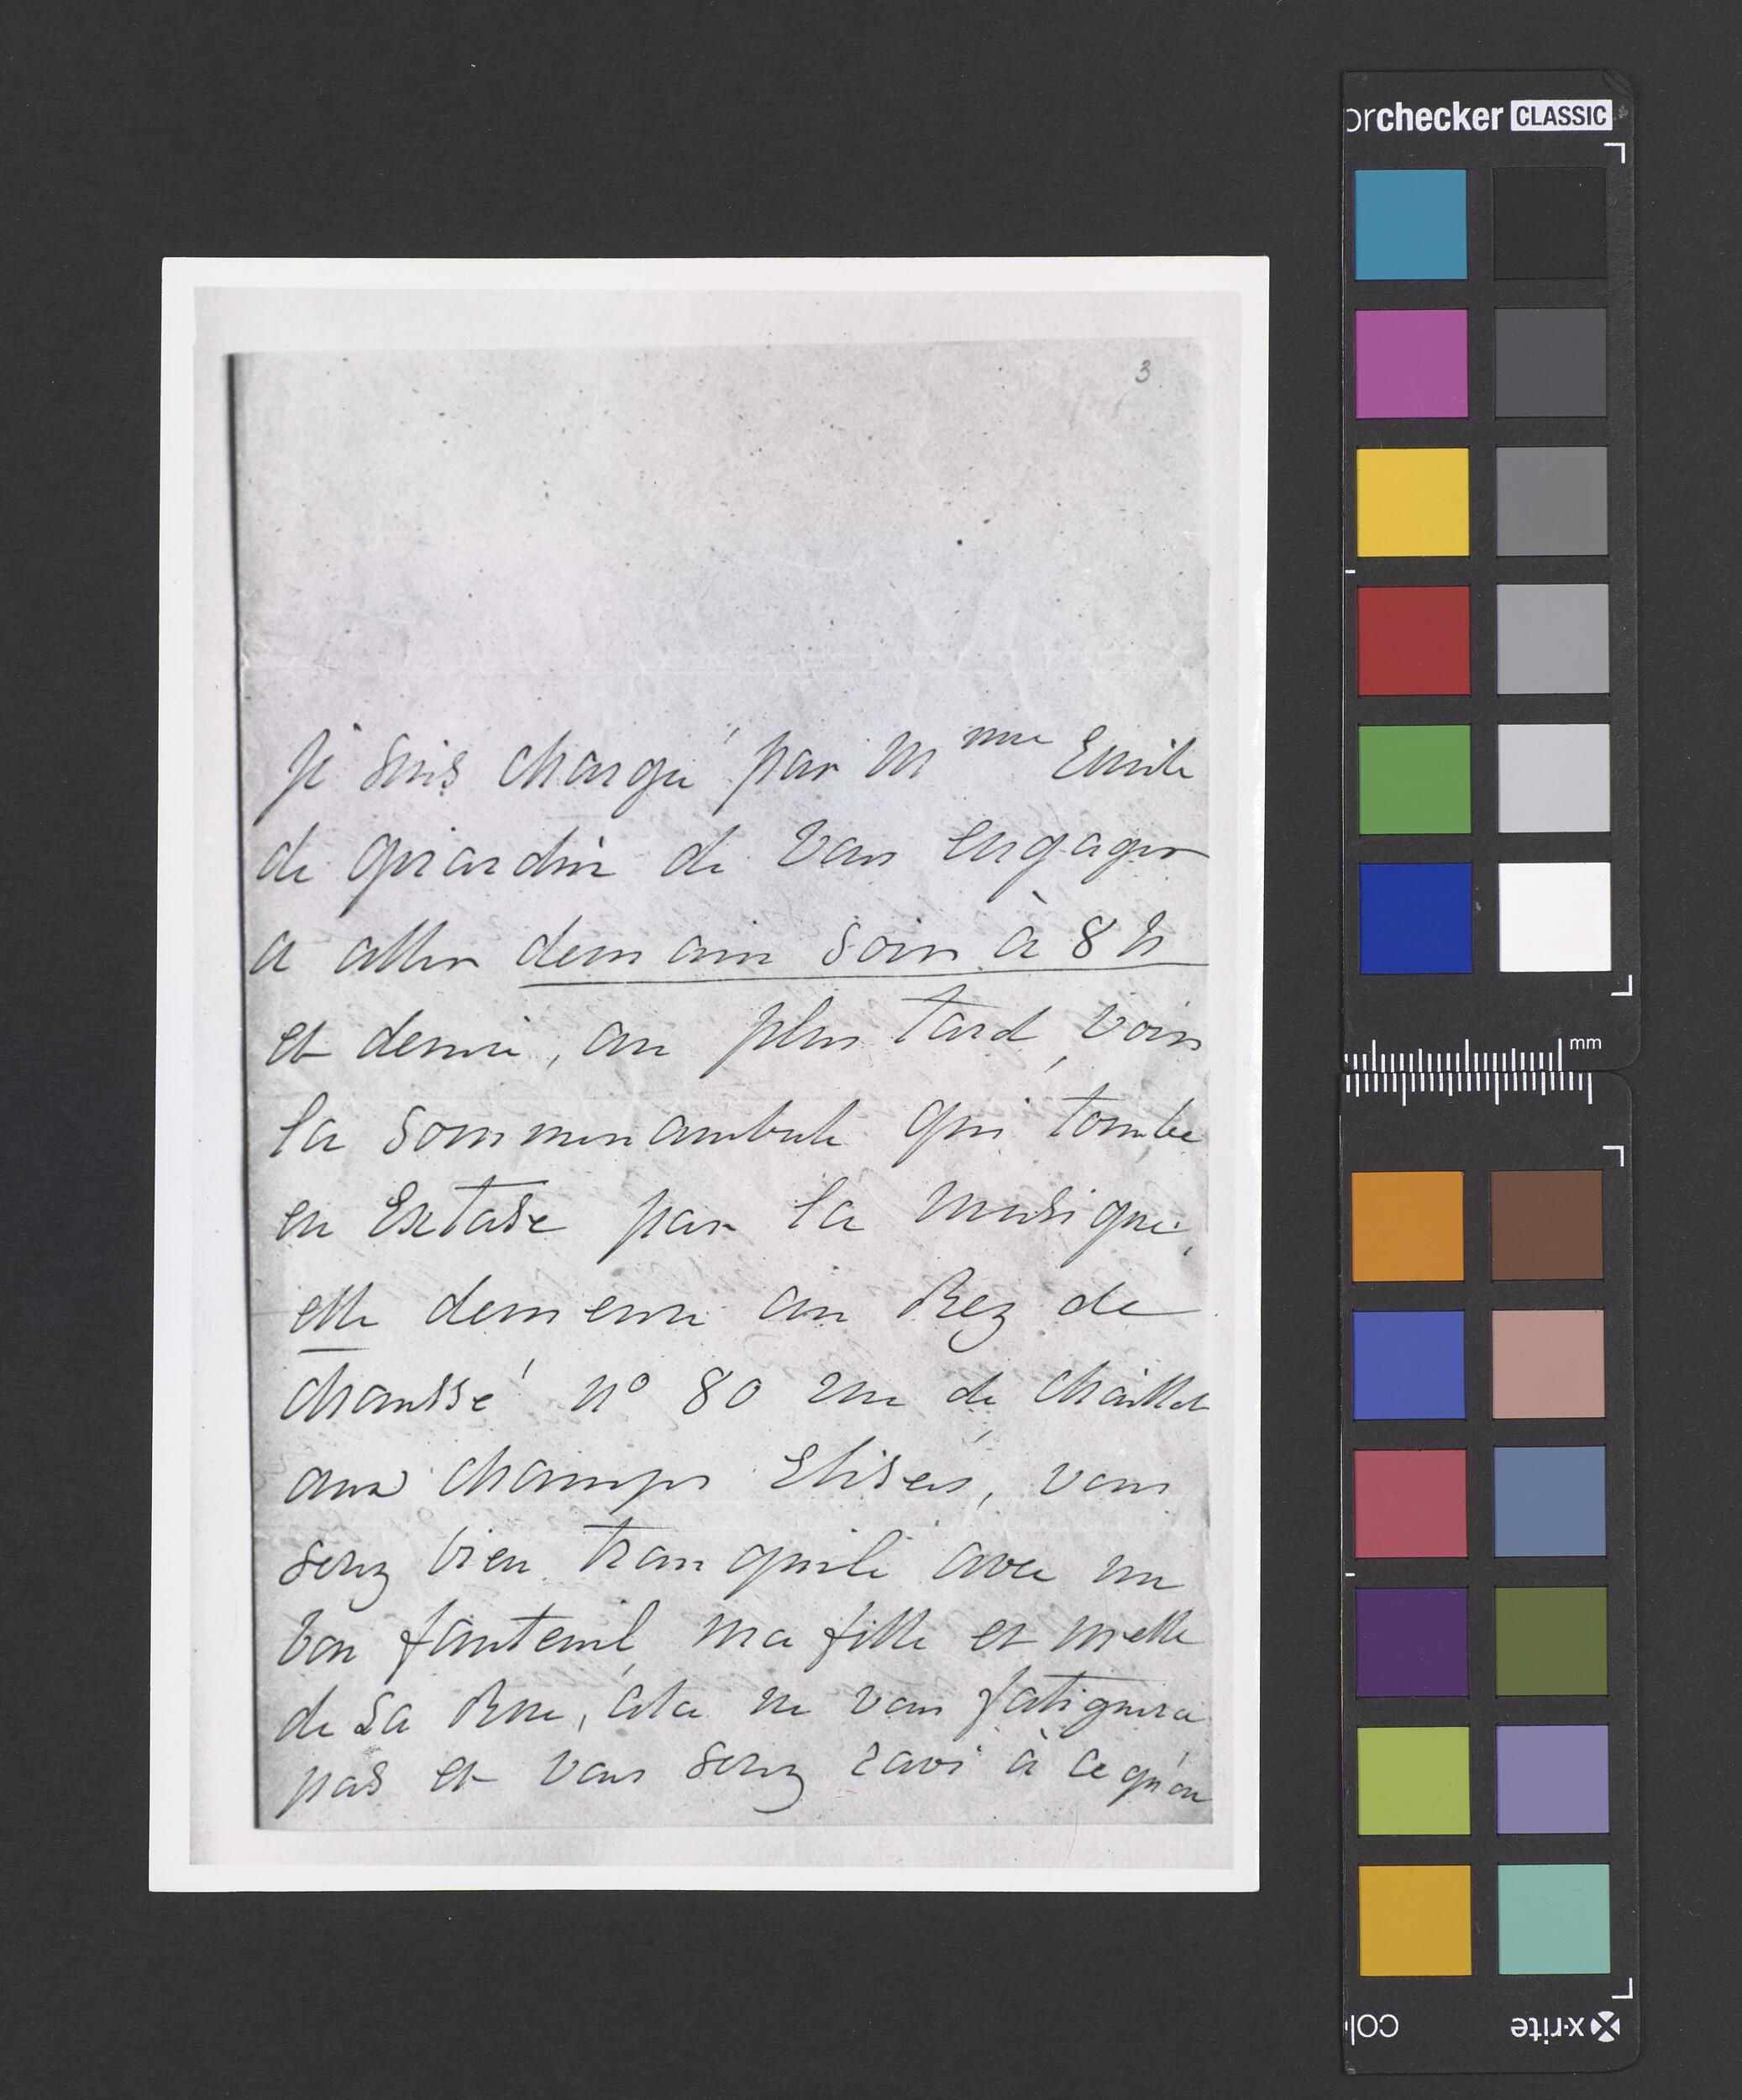 3
je suis chargé par Mme Emile
de girardin de vous engager
a aller demain soir à 8 h
et demie, au plus tard, voir
la sommenambule qui tombe
en Extase par la musique,
elle demeure au Rez de
chaussé n° 80 rue de chaillot
aux champs Elisés, vous
serez bien tranquile avec un
bon fauteuil, ma fille et melle
de La Rue, cela ne vous fatiguera
pas et vous serez ravi à ce qu'on
orchecker CLASSIC
mm
col
x-rite